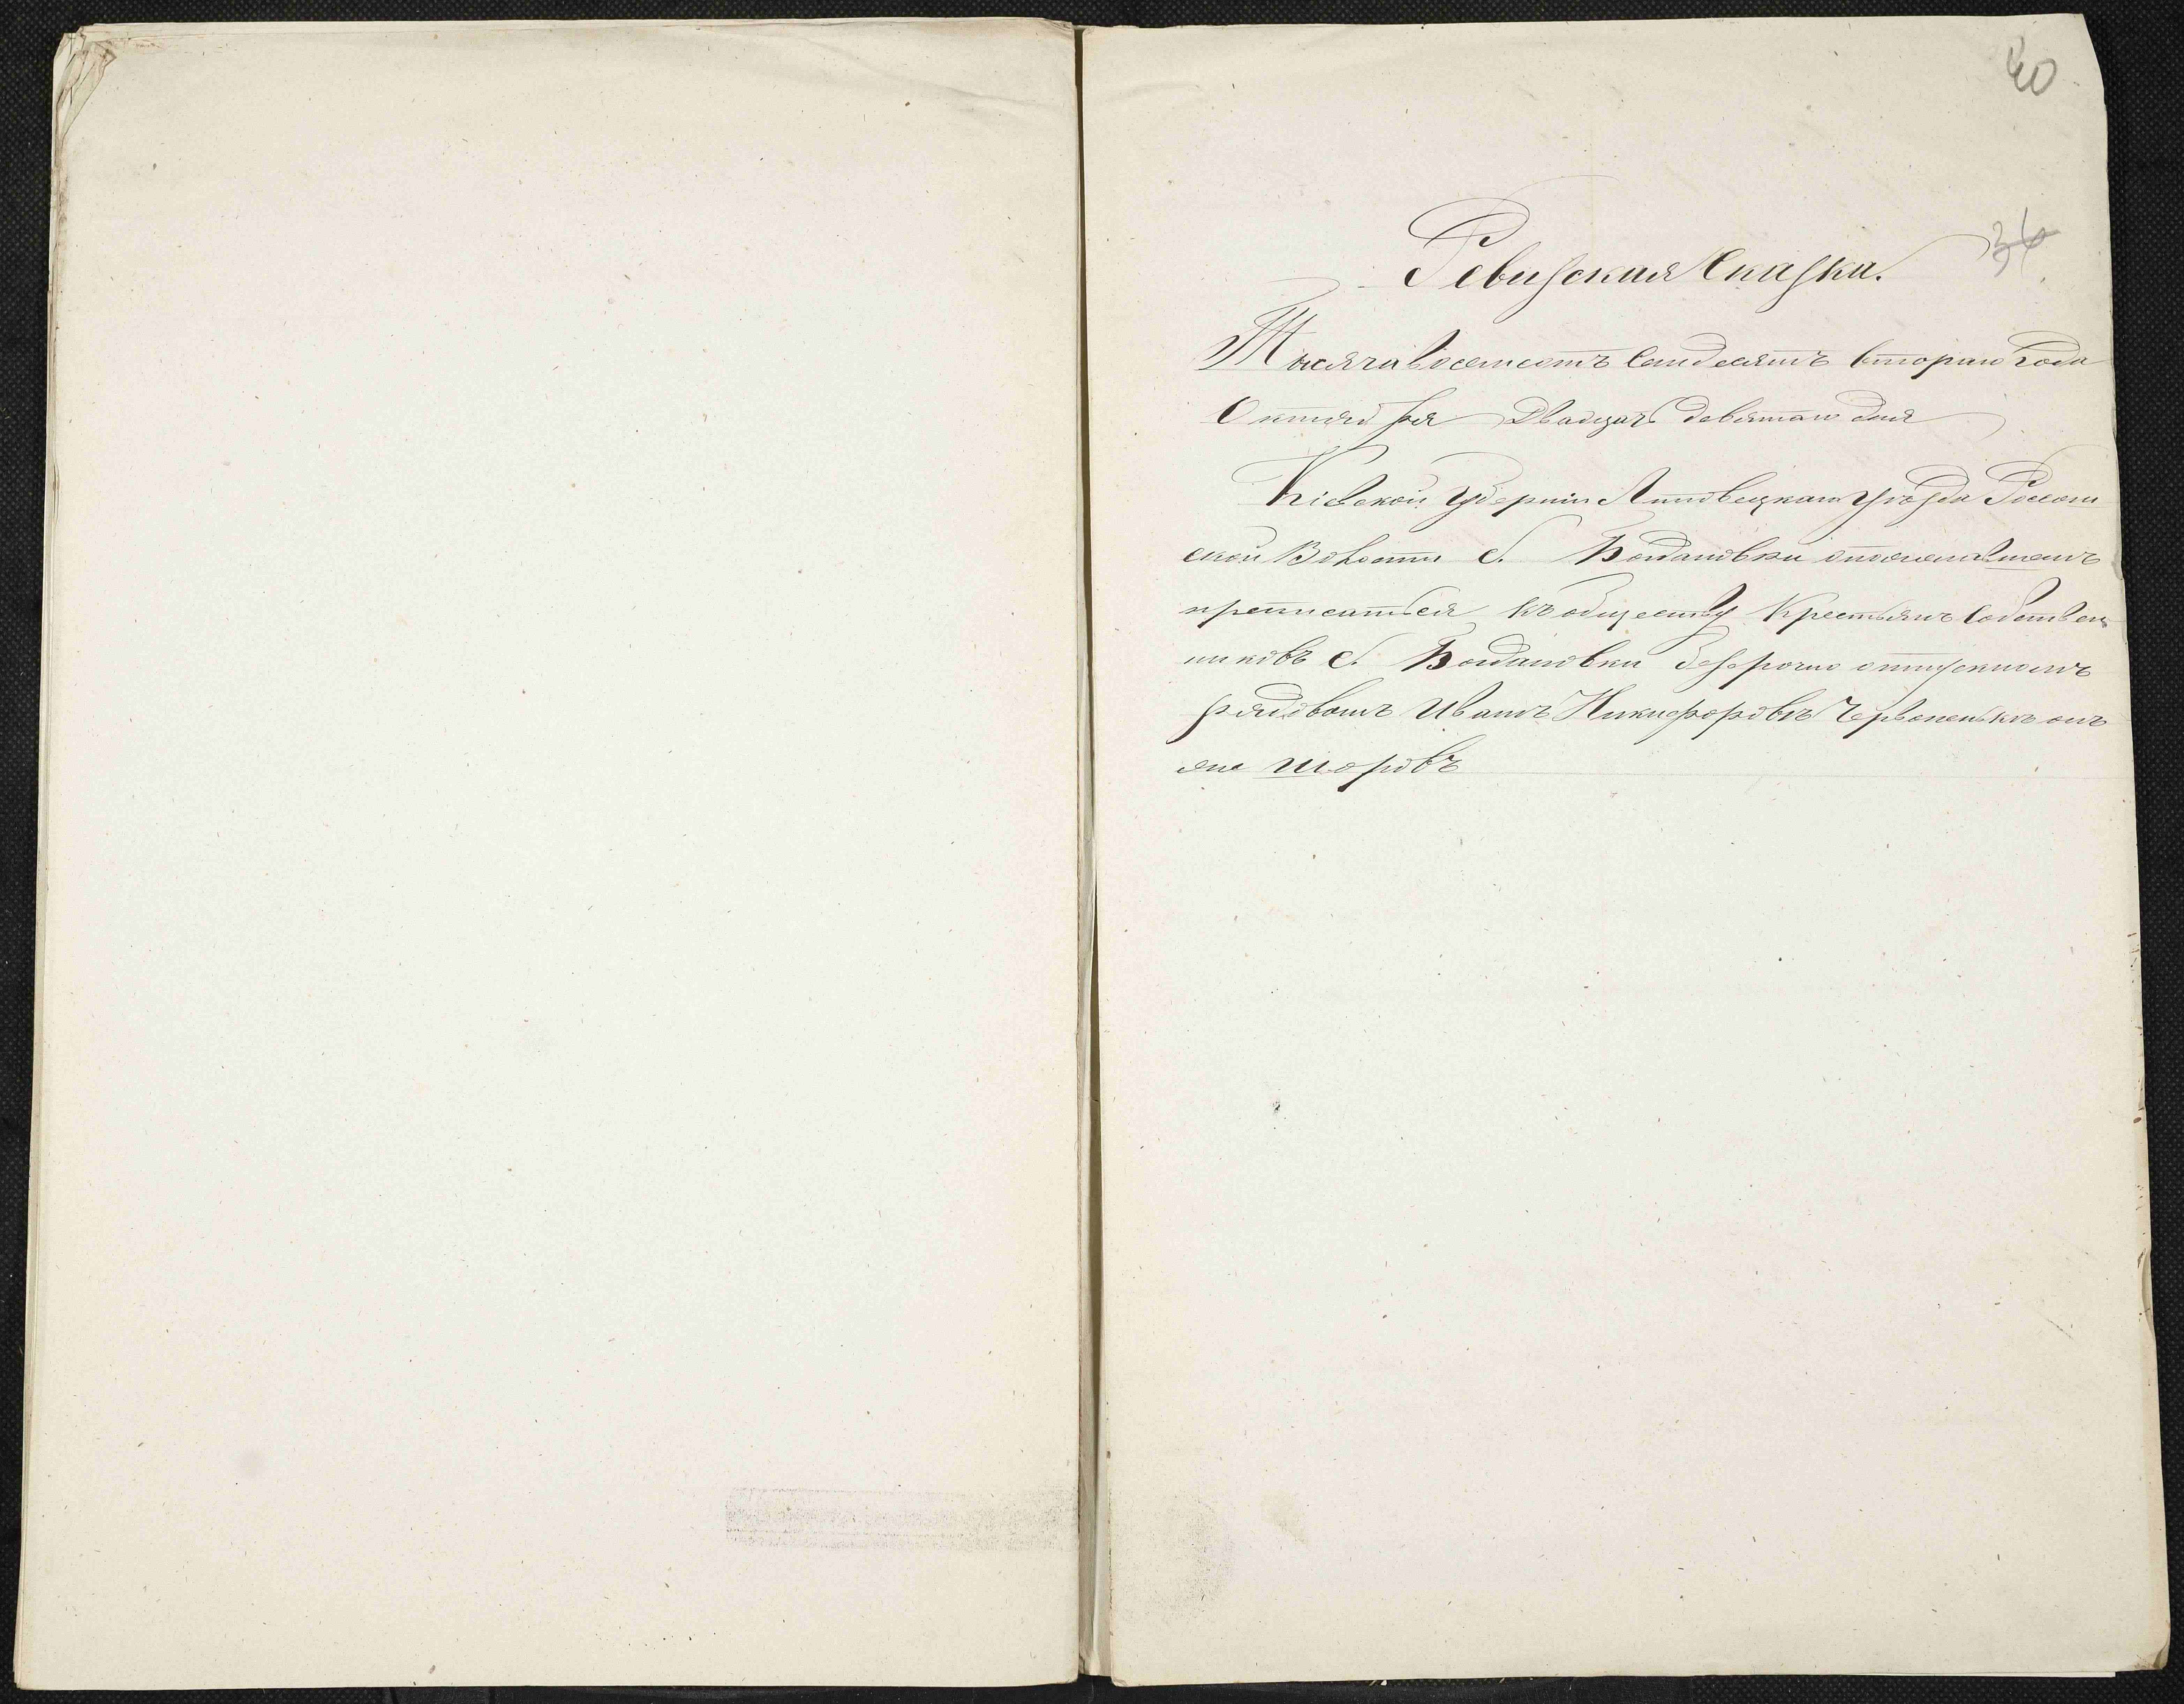 40
36
Ревизская Сказка.
Тысяча восемсотъ семдесятъ втораго года
Октября Двадцать девятаго дня
Кіевской Губерніи Липовецкаго уѣзда Россош
ской Волости С. Богдановки о пожелавшемъ
преписаться къ обществу Крестьянъ Собствен
никовъ С. Богдановки безсрочно отпускномъ
рядовомъ Иванѣ Никифоровѣ Червоненькѣ онъ
же Шоровъ